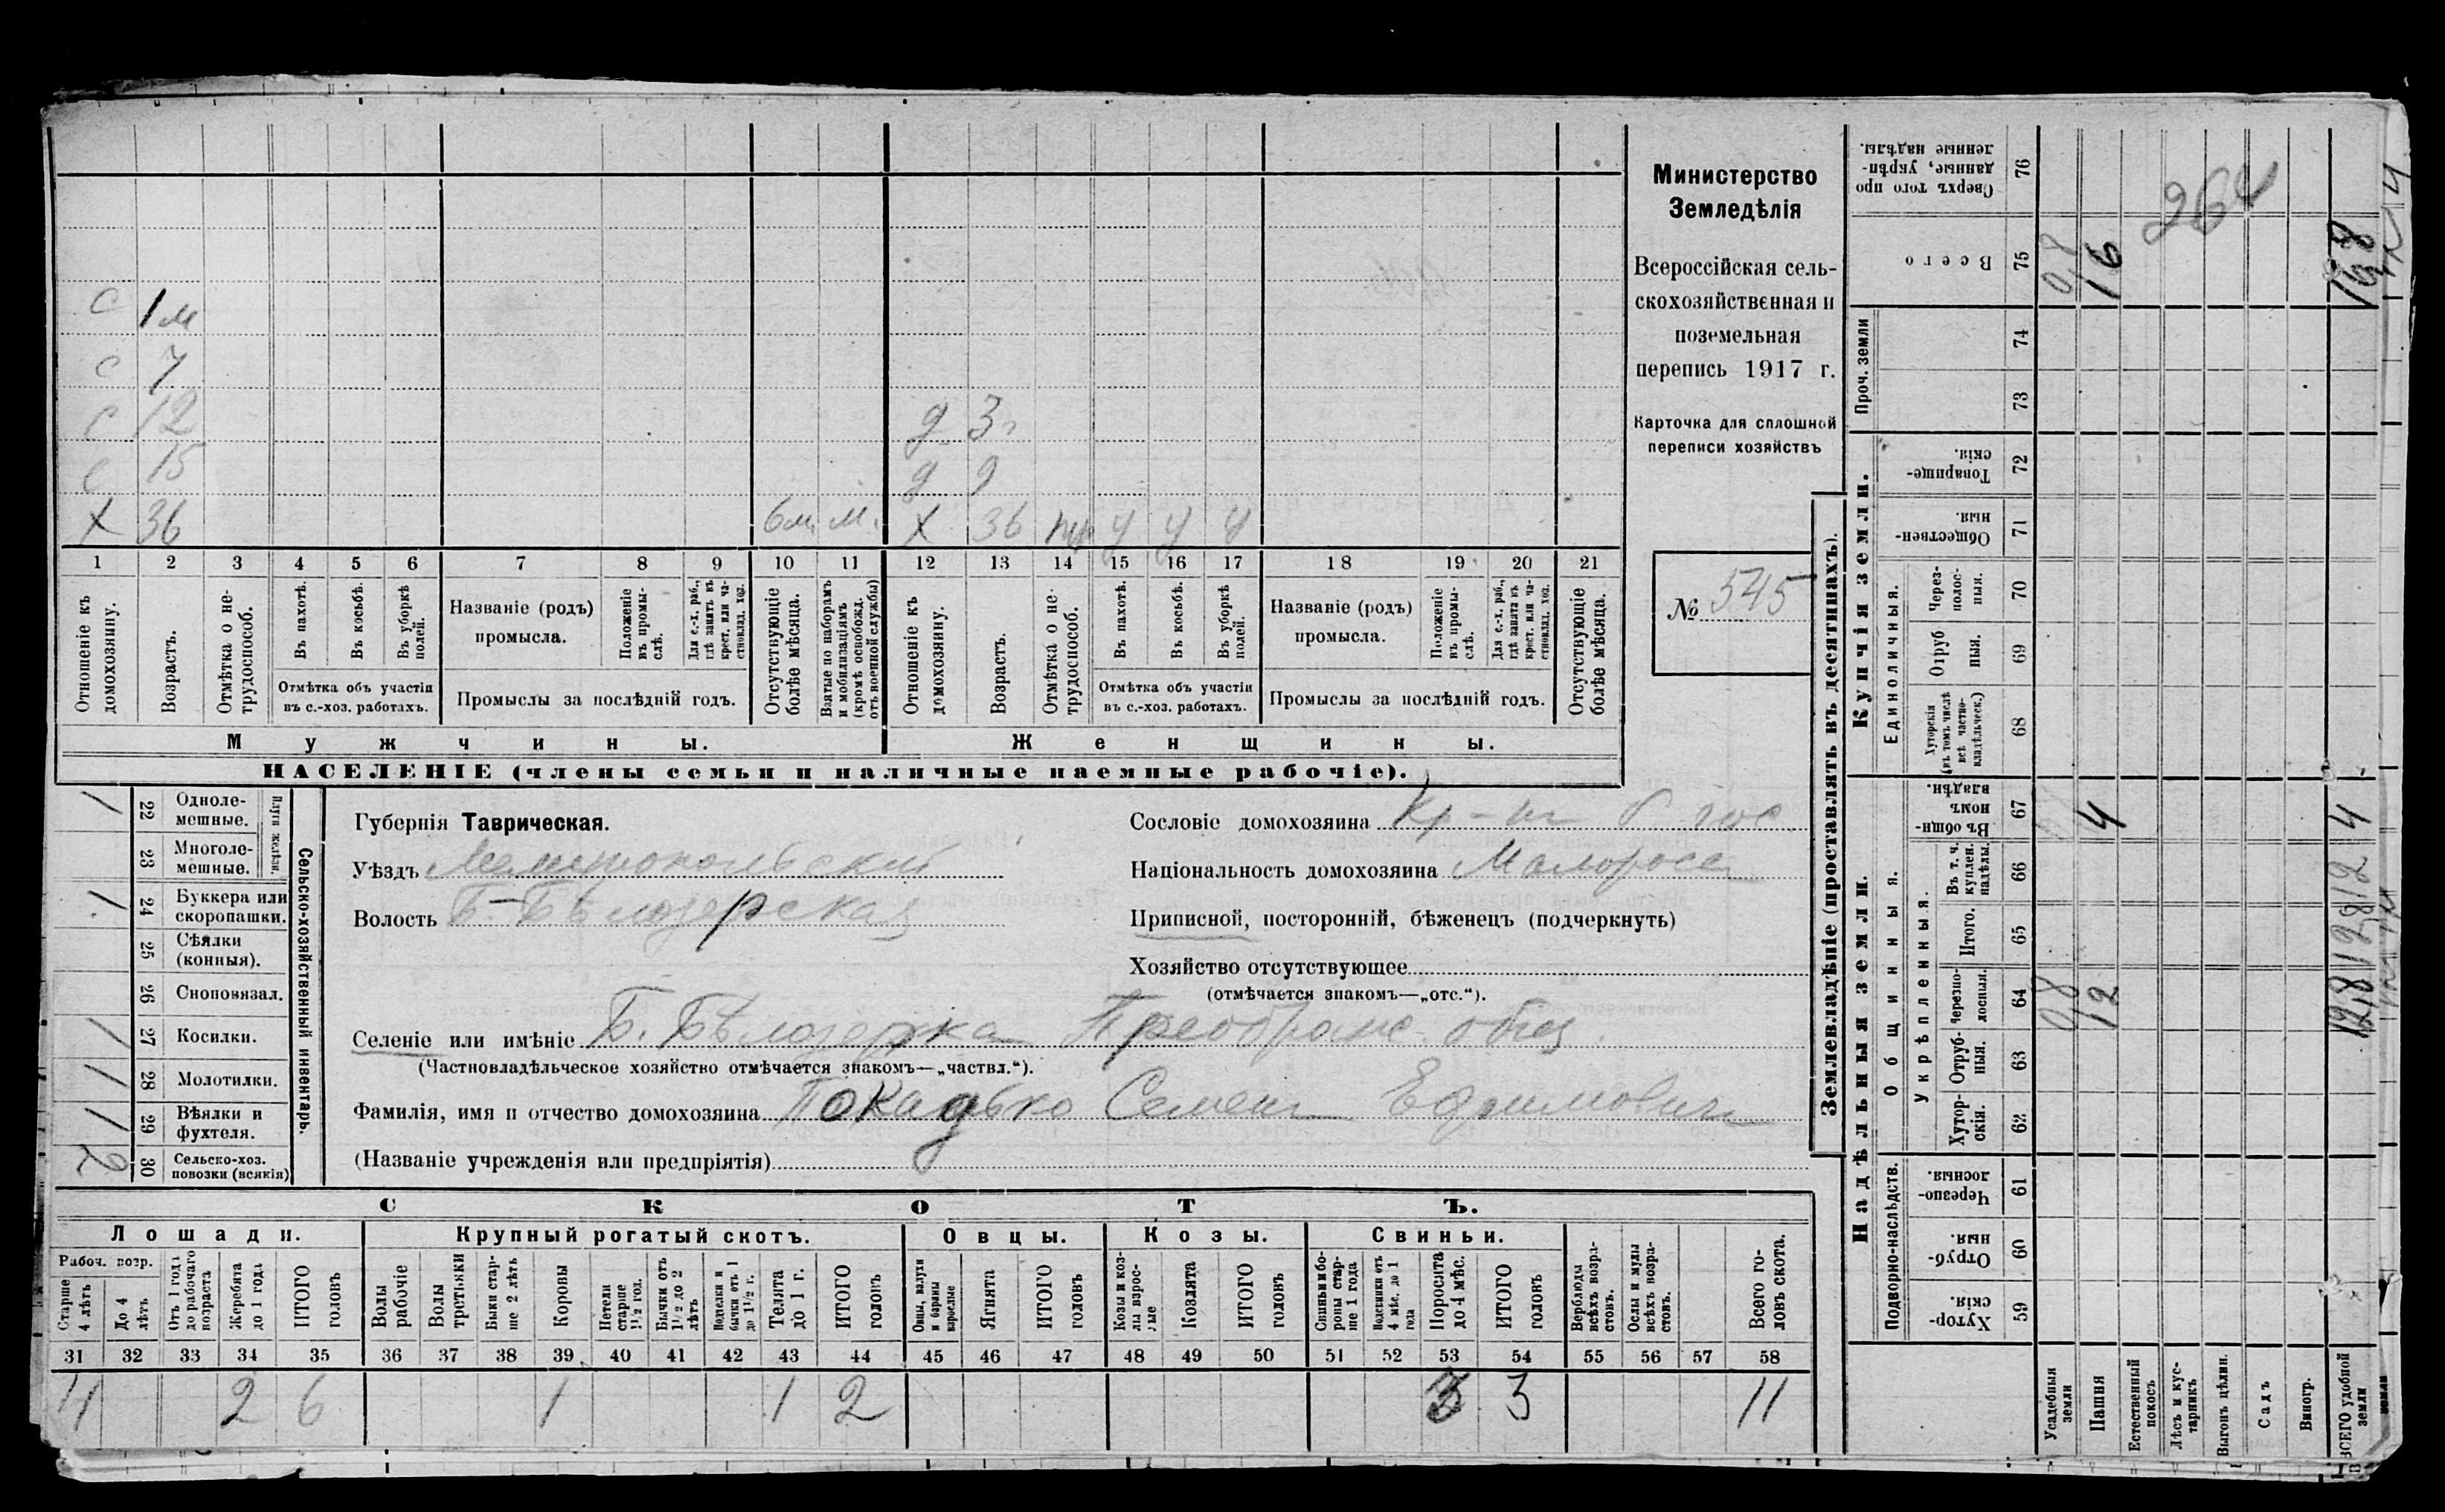 с 1 м
с 7
с 12 д 3 г
с 15 д 9
х 36 6 м. м. х 36 у у у
1 2 3 4 5 6 7 8 9 10 11 12 13 14 15 16 17 18 19 20 21
Отношеніе къ домохозяину.
Возрастъ.
Отмѣтка о нетрудоспособ.
Въ пахотѣ.
Въ косьбѣ.
Въ уборкѣ полей.
Отмѣтка объ участіи въ с.-хоз. работахъ.
Названіе (родъ) промысла.
Положеніе въ промыслѣ.
Для с.-х. раб., гдѣ занятъ въ крест. или частновлад. хоз.
Промыслы за послѣдній годъ.
Отсутствующіе болѣе мѣсяца.
Взятые по наборамъ и мобилизаціямъ (кромѣ освобожд. отъ военной службы)
Отношеніе къ домохозяину.
Возрастъ.
Отмѣтка о нетрудоспособ.
Въ пахотѣ.
Въ косьбѣ.
Въ уборкѣ полей.
Отмѣтка объ участіи въ с.-хоз. работахъ.
Названіе (родъ) промысла.
Положеніе въ промыслѣ.
Для с.-х. раб., гдѣ занята въ крест. или частновлад. хоз.
Промыслы за послѣдній годъ.
Отсутствующіе болѣе мѣсяца.
Мужчины. Женщины.
НАСЕЛЕНІЕ (члены семьи и наличные наемные рабочіе).
Министерство
Земледѣлія
Всероссійская сель-
скохозяйственная и
поземельная
перепись 1917 г.
Карточка для сплошной
переписи хозяйствъ
№ 545
Сельско-хозяйственный инвентарь.
Плуги желѣзн.
1 22 Одноле-
мешные.
23 Многоле-
мешные.
1 24 Буккера или
скоропашки.
25 Сѣялки
(конныя).
26 Сноповязал.
1 27 Косилки.
1 28 Молотилки.
1 29 Вѣялки и
фухтеля.
2 30 Сельско-хоз.
повозки (всякія)
Губернія Таврическая.
Уѣздъ Мелитопольский
Волость Б-Бѣлозерская
Сословіе домохозяина Кр-нъ б гос
Національность домохозяина Малороссъ
Приписной, посторонній, бѣженецъ (подчеркнуть)
Хозяйство отсутствующее
(отмѣчается знакомъ—„отс.“).
Селеніе или имѣніе Б. Бѣлозерка Преображ. общ.
(Частновладѣльческое хозяйство отмѣчается знакомъ—„частвл.“).
Фамилія, имя и отчество домохозяина Покадько Семенъ Ефимовичъ
(Названіе учрежденія или предпріятія)
СКОТЪ.
Лошади. Крупный рогатый скотъ. Овцы. Козы. Свиньи.
Рабоч. возр.
Старше 4 лѣтъ
До 4 лѣтъ
Отъ 1 года до рабочаго возраста
Жеребята до 1 года
ИТОГО головъ
Волы рабочіе
Волы третьяки
Быки старше 2 лѣтъ
Коровы
Нетели старше 1½ год.
Бычки отъ 1½ до 2 лѣтъ
Подтелки и бычки отъ 1 до 1½ г.
Телята до 1 г.
ИТОГО головъ
Овцы, валухи и бараны взрослые
Ягнята
ИТОГО головъ
Козы и козлы взрослые
Козлята
ИТОГО головъ
Свиньи и боровы старше 1 года
Подсвинки отъ 4 мѣс. до 1 года
Поросята до 4 мѣс.
ИТОГО головъ
Верблюды всѣхъ возрастовъ.
Ослы и мулы всѣхъ возрастовъ.
Всего головъ скота.
31 32 33 34 35 36 37 38 39 40 41 42 43 44 45 46 47 48 49 50 51 52 53 54 55 56 57 58
4 2 6 1 1 2 3 3 11
Землевладѣніе (проставлять въ десятинахъ).
Надѣльныя земли. Купчія земли. Проч. земли
Подворно-наслѣдств. Общинныя. Единоличныя.
Укрѣпленныя.
Хуторскія. 59
Отрубныя. 60
Черезполосныя. 61
Хуторскія. 62
Отрубныя. 63
Черезполосныя. 64 0,8 12 12,8
Итого. 65 12,8
Въ т. ч. куплен. надѣлы. 66
Въ общинномъ владѣн. 67 4 4
Хуторскія (въ томъ числѣ всѣ частновладѣльческ.) 68
Отрубныя. 69
Черезполосныя. 70
Общественныя. 71
Товарищескія. 72
73
74
Всего 75 0,8 16 16,8
Сверхъ того проданные, укрѣпленные надѣлы. 76
264
Усадебныя земли
Пашня
Естественный покосъ
Лѣсъ и кустарникъ
Выгонъ цѣлин.
Садъ
Виногр.
ВСЕГО удобной земли